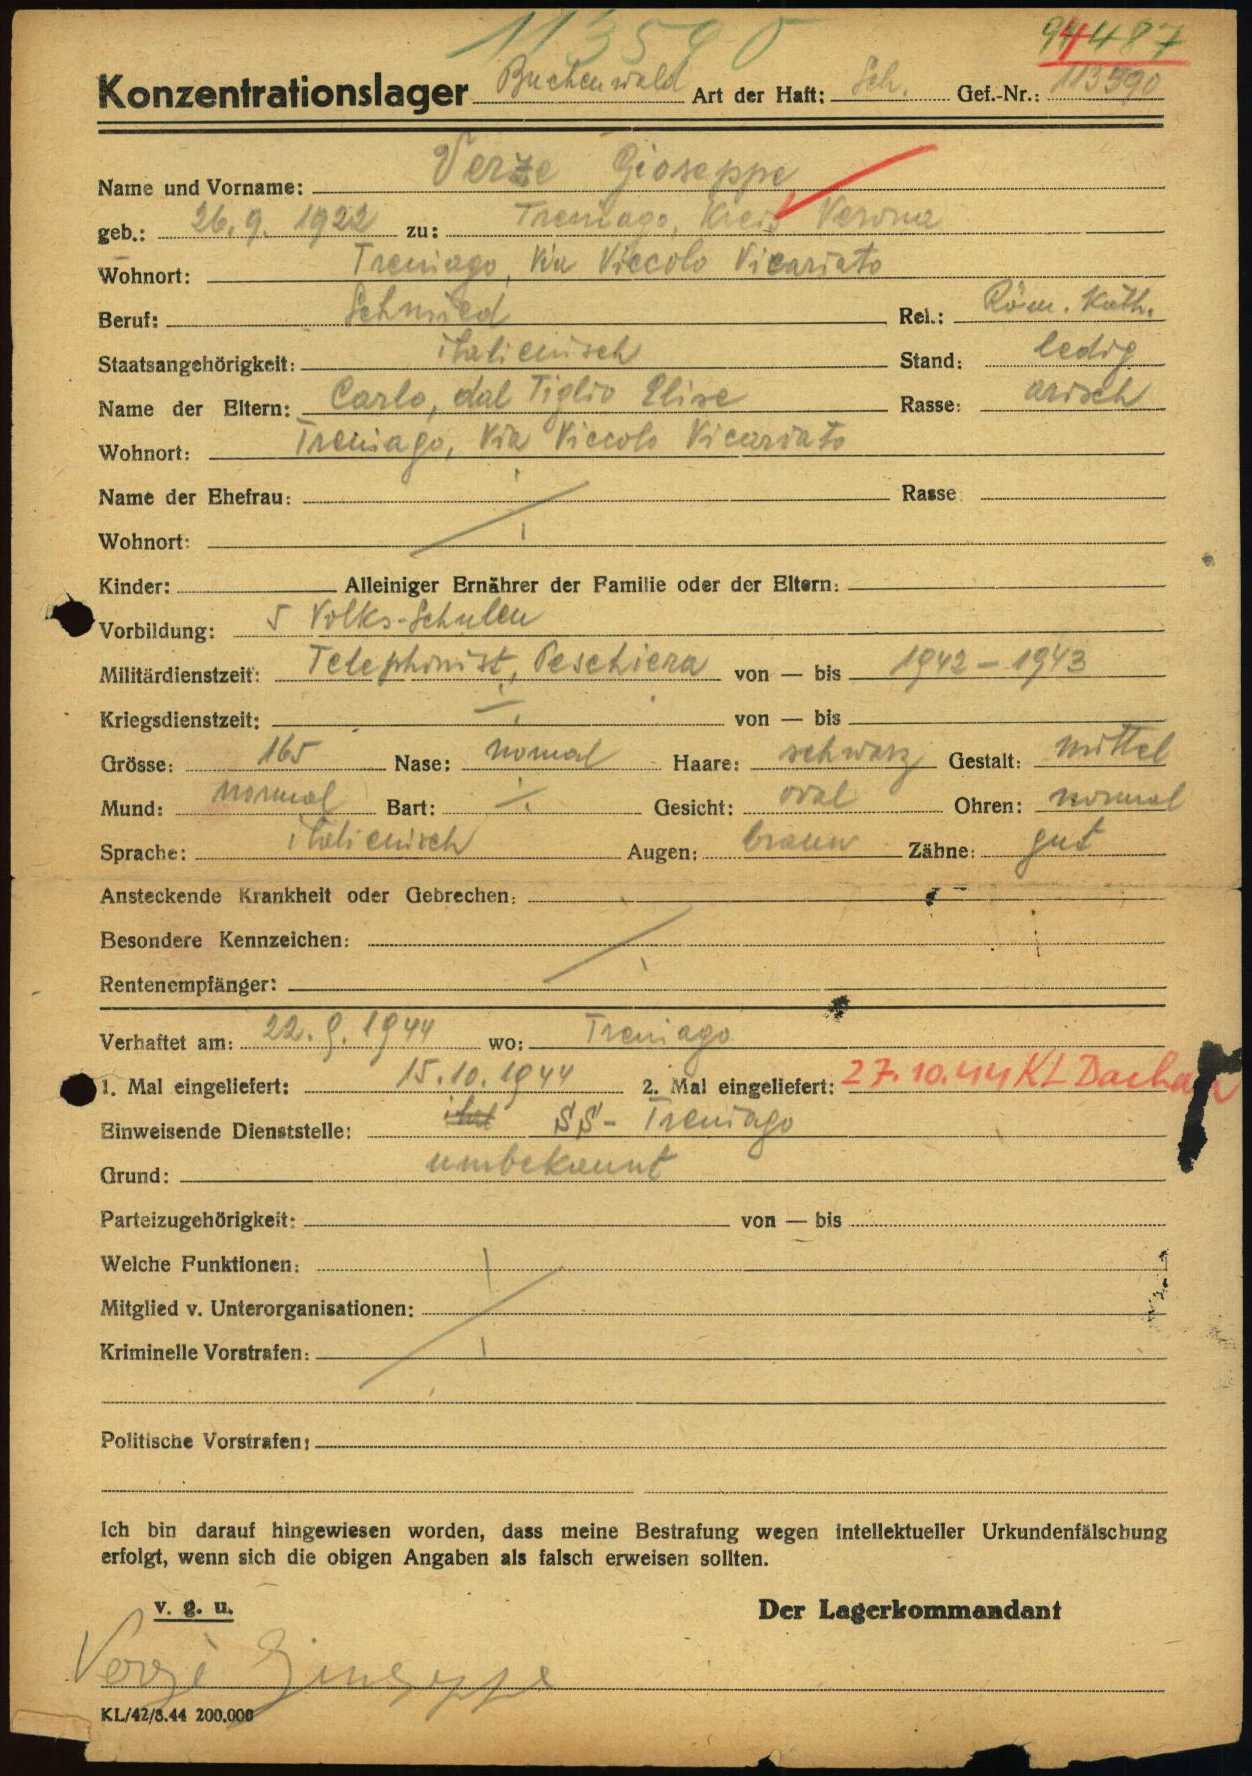 113590
94487
Konzentrationslager Buchenwald Art der Haft: Sch. Gef.-Nr.: 113590
Name und Vorname: Verze Gioseppe
geb.: 26.9.1922 zu: Treniago, Kreis Verona
Wohnort: Treniago, Via Viccolo Vicariato
Beruf: Schmied Rel.: Röm. Kath.
Staatsangehörigkeit: italienisch Stand: ledig
Name der Eltern: Carlo, dal Tiglio Elise Rasse: arisch
Wohnort: Treniago, Via Viccolo Vicariato
Name der Ehefrau: Rasse
Wohnort:
Kinder: Alleiniger Ernährer der Familie oder der Eltern:
Vorbildung: 5 Volks-Schulen
Militärdienstzeit: Telephonist, Peschiera von — bis 1942 - 1943
Kriegsdienstzeit: ./. von — bis
Grösse: 165 Nase: normal Haare: schwarz Gestalt: mittel
Mund: normal Bart: ./. Gesicht: oval Ohren: normal
Sprache: italienisch Augen: braun Zähne: gut
Ansteckende Krankheit oder Gebrechen:
Besondere Kennzeichen:
Rentenempfänger:
Verhaftet am: 22.9.1944 wo: Treniago
1. Mal eingeliefert: 15.10.1944 2. Mal eingeliefert: 27.10.44 KL Dachau
Einweisende Dienststelle: SS- Treniago
Grund: umbekannt
Parteizugehörigkeit: von — bis
Welche Funktionen:
Mitglied v. Unterorganisationen:
Kriminelle Vorstrafen:
Politische Vorstrafen:
Ich bin darauf hingewiesen worden, dass meine Bestrafung wegen intellektueller Urkundenfälschung
erfolgt, wenn sich die obigen Angaben als falsch erweisen sollten.
v. g. u. Der Lagerkommandant
Verzè Giuseppe
KL/42/8.44 200.000